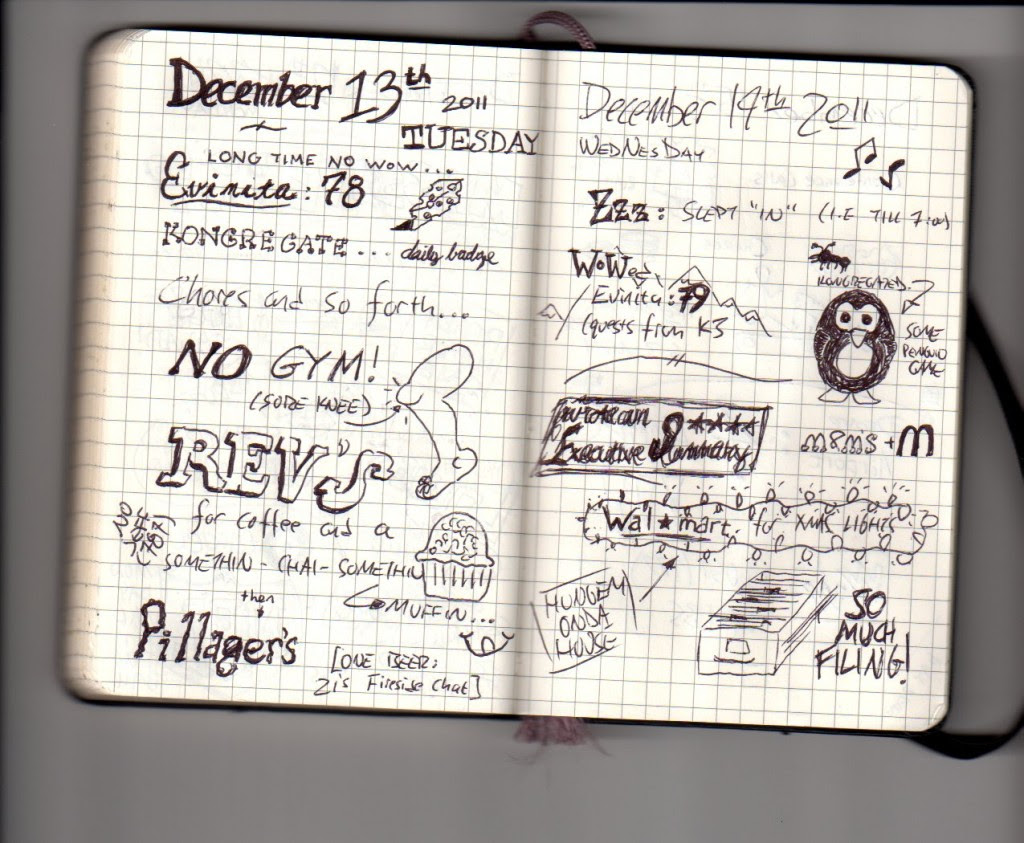 December 13th 2011
TUESDAY
LONG TIME NO WOW...
Evinita: 78
KONGREGATE... daily badge
Chores and so forth...
NO GYM!
(SORE KNEE)
REV'S
for coffee and a
SOMETHIN-CHAI-SOMETHIN
MUFFIN...
then
Pillager's
[ONE BEER:
Zi's Fireside Chat]
December 14th 2011
WEDNESDAY
Zzz: SLEPT "IN" (I.E TILL 7:00)
WoWed
Evinita: 79
(quests from K3
KONGREGATED?
SOME
PENGUIN
GAME
Executive Summary
M&M'S + M
Wal★mart for XMAS LIGHTS
HUNGEM
ONDA
HOUSE
SO
MUCH
FILING!